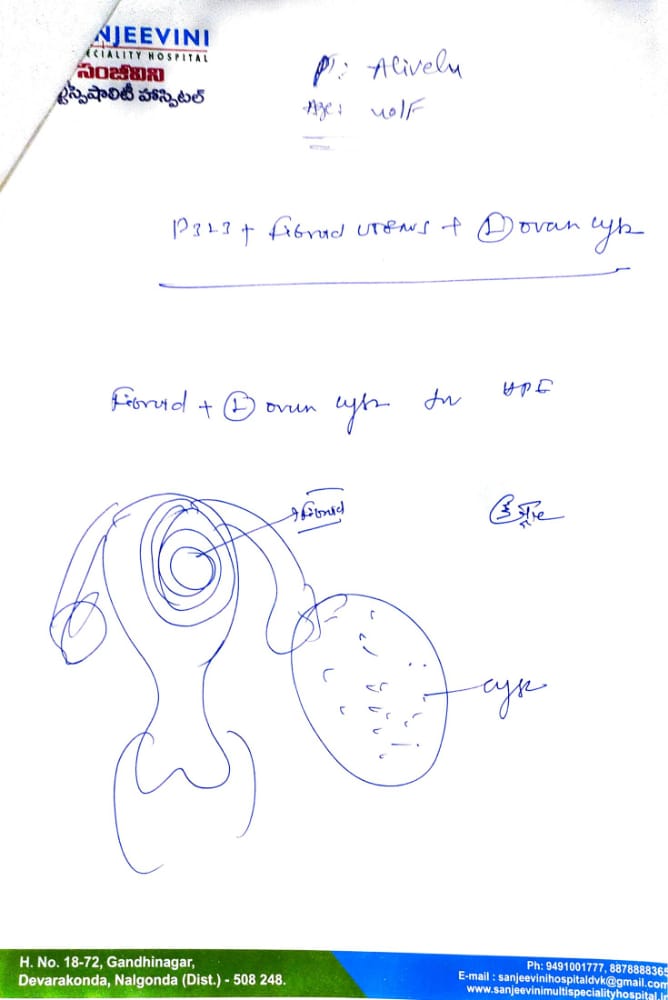 NJEEVINI
ECIALITY HOSPITAL
సంజీవిని
స్పెషాలిటీ హాస్పిటల్
Pt: Alivelu
Age: 40/F
P3L3 + fibroid uterus + Ⓛ ovarian cyst
Fibroid + Ⓛ ovarian cyst for HPE
Fibroid
cyst
H. No. 18-72, Gandhinagar,
Devarakonda, Nalgonda (Dist.) - 508 248.
Ph: 9491001777, 8878888365
E-mail : sanjeevinihospitaldvk@gmail.com
www.sanjeevinimultispecialityhospital.